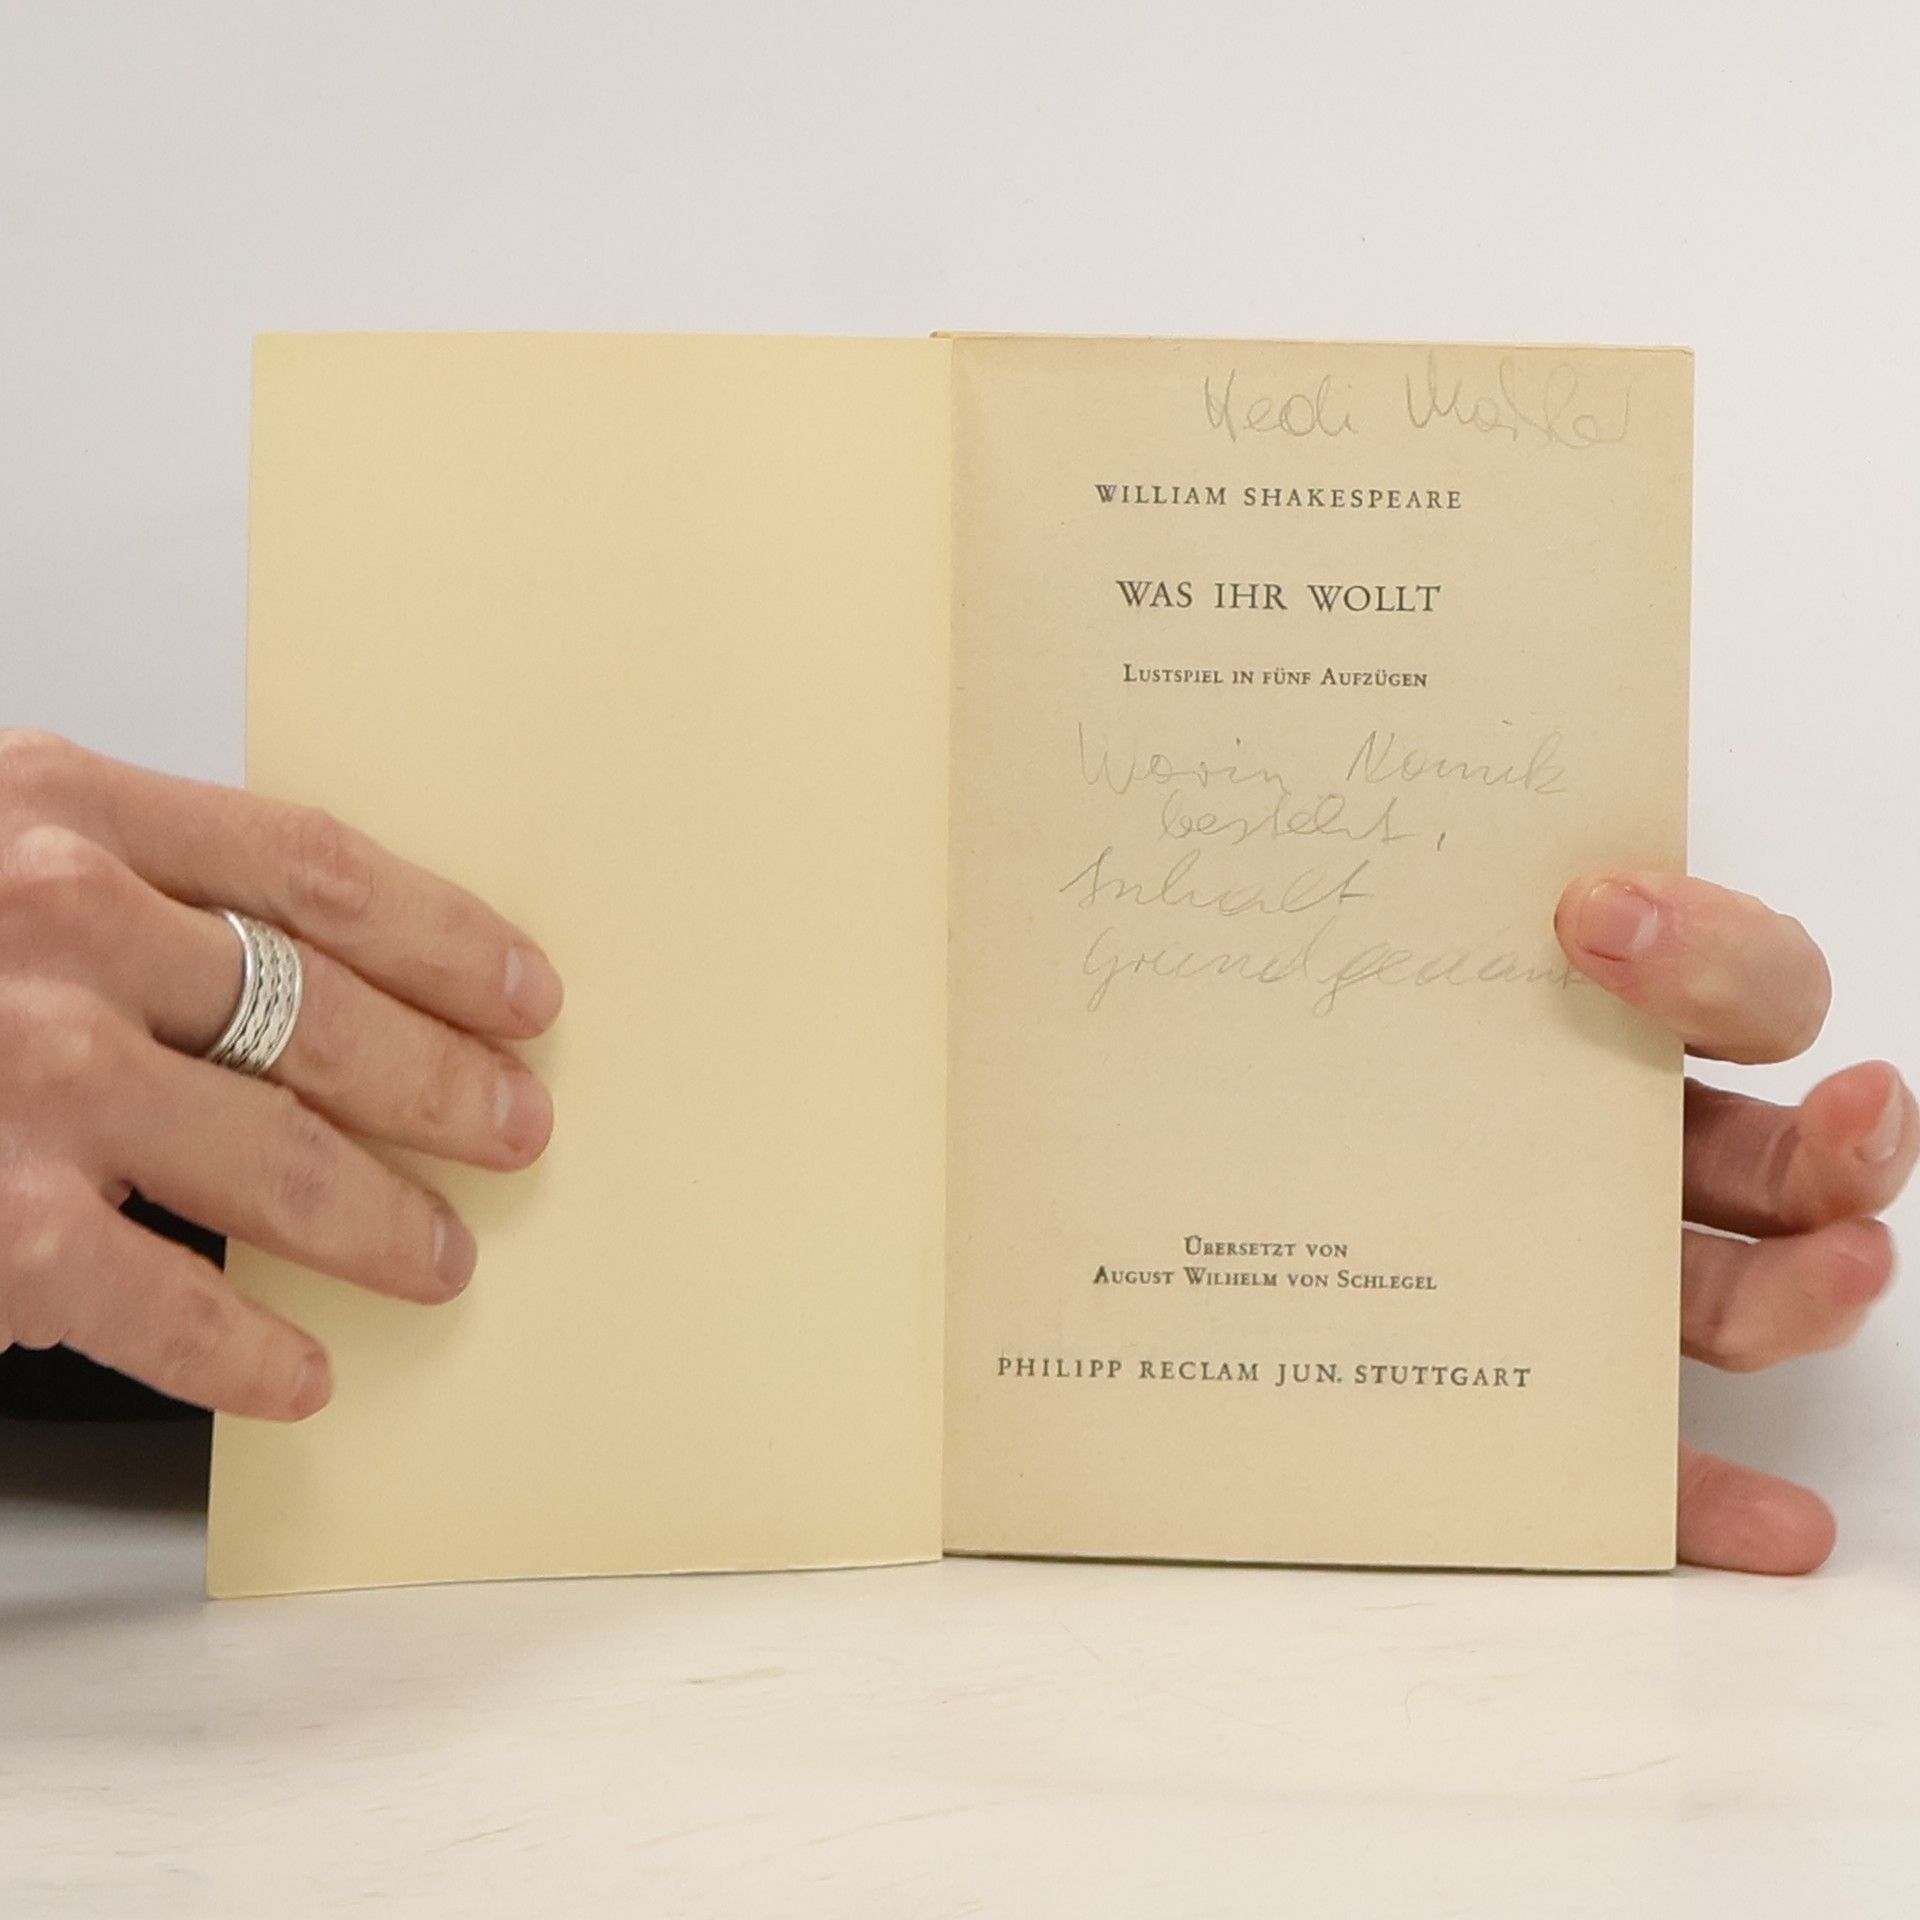 Heidi
WILLIAM SHAKESPEARE
WAS IHR WOLLT
LUSTSPIEL IN FÜNF AUFZÜGEN
Worin Komik
besteht,
Inhalt
Grundgedank
ÜBERSETZT VON
AUGUST WILHELM VON SCHLEGEL
PHILIPP RECLAM JUN. STUTTGART